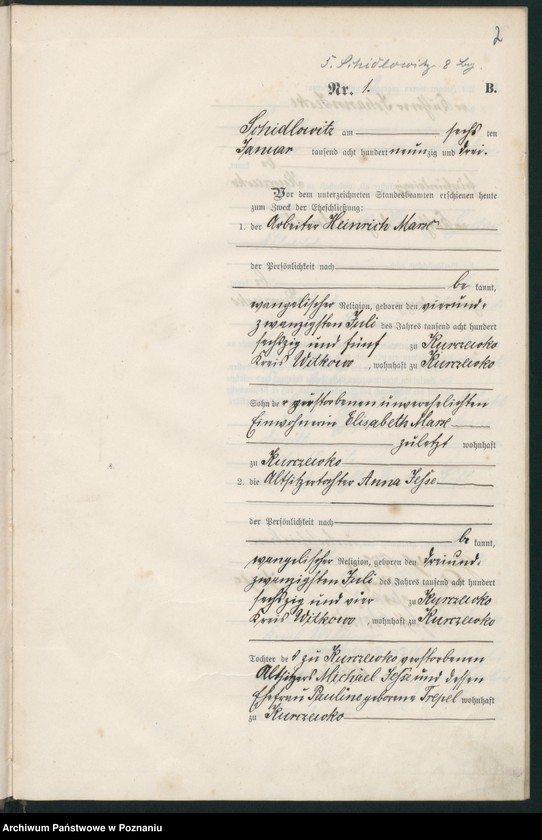 2
5. Schidlowitz 8
Nr. 1. B.
Schidlowitz am sechs ten
Januar tausend acht hundert neunzig und drei.
Vor dem unterzeichneten Standesbeamten erschienen heute
zum Zweck der Eheschließung:
1. der Arbeiter Heinrich Marx
der Persönlichkeit nach
be kannt,
evangelischer Religion, geboren den vierund-
zwanzigsten Juli des Jahres tausend acht hundert
sechszig und fünf zu Kurczewko
Kreis Witkowo, wohnhaft zu Kurczewko
Sohn der verstorbenen unverehelichten
Einwohnerin Elisabeth Marx
zuletzt wohnhaft
zu Kurczewko
2. die Altsitzertochter Anna Jesse
der Persönlichkeit nach
be kannt,
evangelischer Religion, geboren den dreiund-
zwanzigsten Juli des Jahres tausend acht hundert
sechszig und vier zu Kurczewko
Kreis Witkowo, wohnhaft zu Kurczewko
Tochter des zu Kurczewko verstorbenen
Altsitzers Michael Jesse und dessen
Ehefrau Pauline geborene Trepel wohnhaft
zu Kurczewko
Archiwum Państwowe w Poznaniu